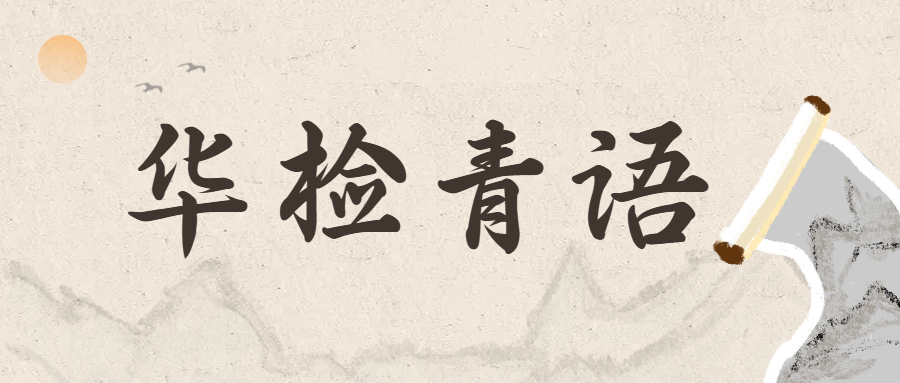 华检青语